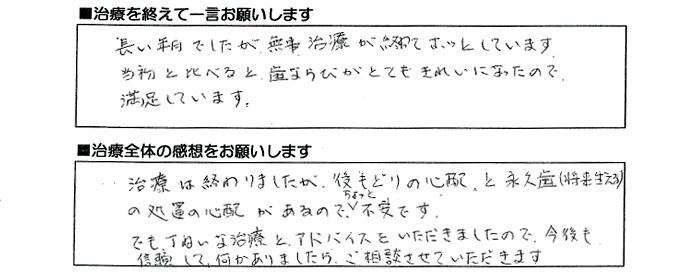 ■治療を終えて一言お願いします
長い年月でしたが、無事治療が終わってホッとしています。
当初と比べると、歯ならびがとてもきれいになったので、
満足しています。
■治療全体の感想をお願いします
治療は終わりましたが、後もどりの心配、と永久歯(将来生える)
の処置の心配があるので、ちょっと不安です。
でも、丁ねいな治療と、アドバイスをいただきましたので、今後も
信頼して、何かありましたら、ご相談させていただきます